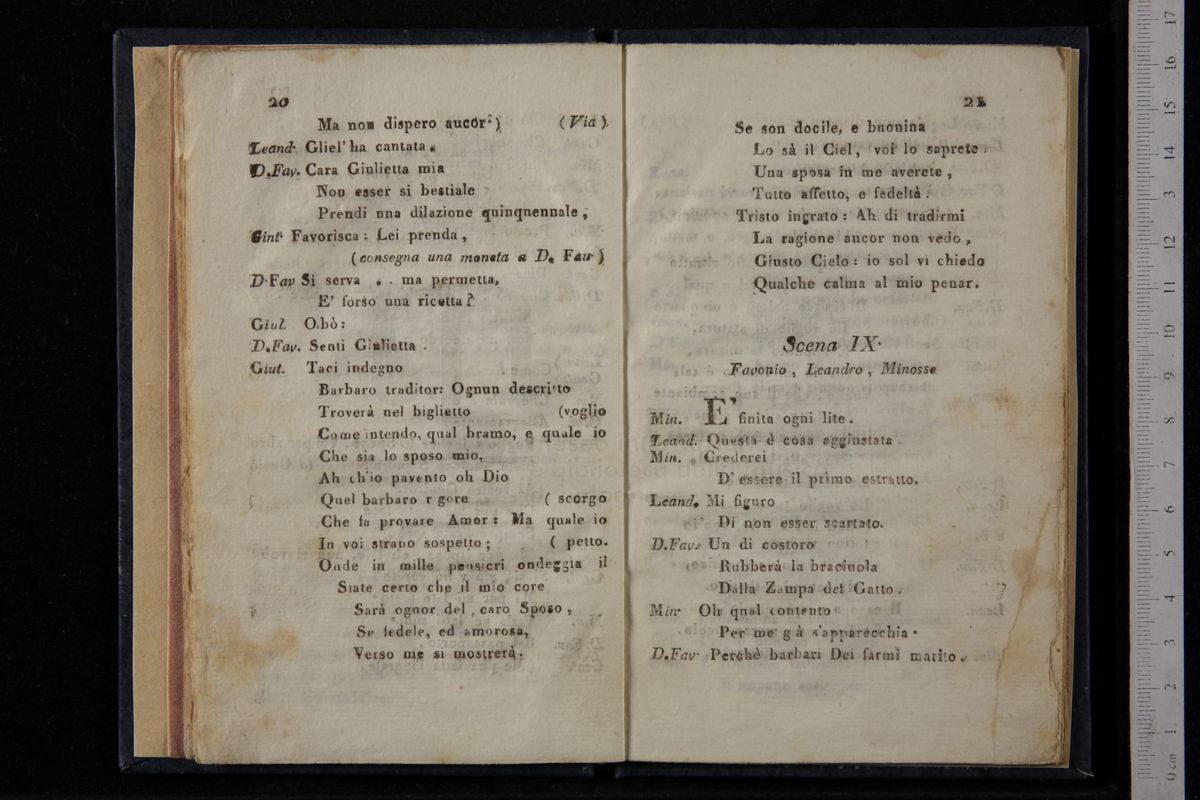 20
Ma non dispero aucor.) (Via).
Leand. Gliel' ha cantata.
D. Fav. Cara Giulietta mia
Non esser si bestiale
Prendi nna dilazione quinqnennale;
Gint. Favorisca: Lei prenda,
(consegna una moneta a D. Fav.)
D. Fav Si serva . . ma permetta,
E' forso una ricetta?
Giul. O.bò:
D. Fav. Senti Giulietta.
Giut. Taci indegno
Barbaro traditor: Ognun descritto
Troverà nel biglietto (voglio
Come intendo, qual bramo, e quale io
Che sia lo sposo mio,
Ah ch'io pavento oh Dio
Quel barbaro r gore ( scorgo
Che fa provare Amor: Ma quale io
In voi strano sospetto; ( petto.
Onde in mille pensieri ondeggia il
Siate certo che il mio core
Sarà ognor del caro Sposo,
Se fedele, ed amorosa,
Verso me si mostrerà.
21
Se son docile, e bnonina
Lo sà il Ciel, voi lo saprete.
Una sposa in me averete,
Tutto affetto, e fedeltà.
Tristo ingrato: Ah di tradirmi
La ragione ancor non vedo,
Giusto Cielo: io sol vi chiedo
Qualche calma al mio penar.
Scena IX.
Favonio, Leandro, Minosse
Min. E' finita ogni lite.
Leand. Questa è cosa aggiustata.
Min. Crederei
D' essere il primo estratto.
Leand. Mi figuro
Di non esser scartato.
D. Fav. Un di costoro
Rubberà la braciuola
Dalla Zampa del Gatto.
Min. Oh qual contento
Per me g à s'apparecchia.
D. Fav. Perchè barbari Dei farmi marito.
0 cm 1 2 3 4 5 6 7 8 9 10 11 12 13 14 15 16 17